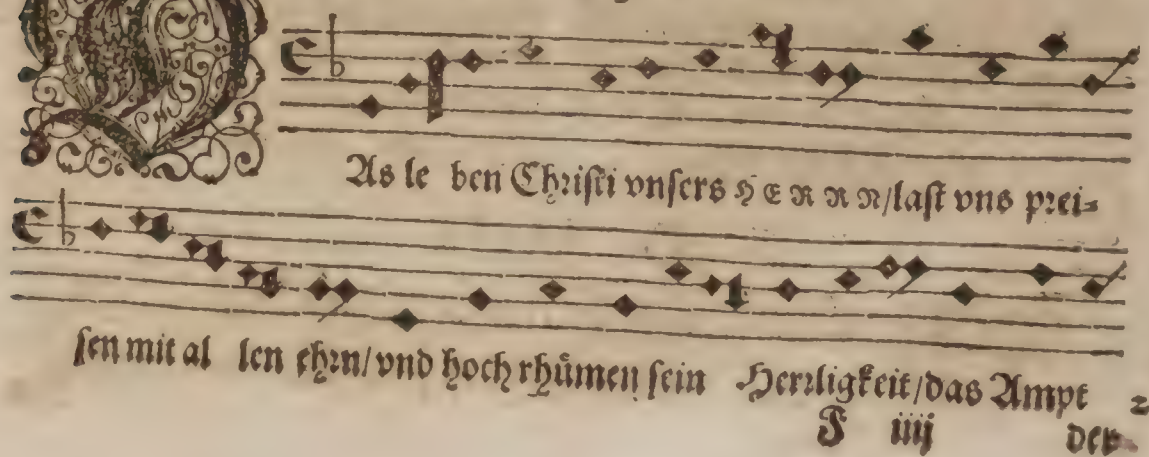 DAs le ben Christi vnsers HERRN/last vns prei⸗
sen mit al len ehrn/vnd hoch rhůmen sein Herrligkeit/das Ampt ⸗
F iiij der